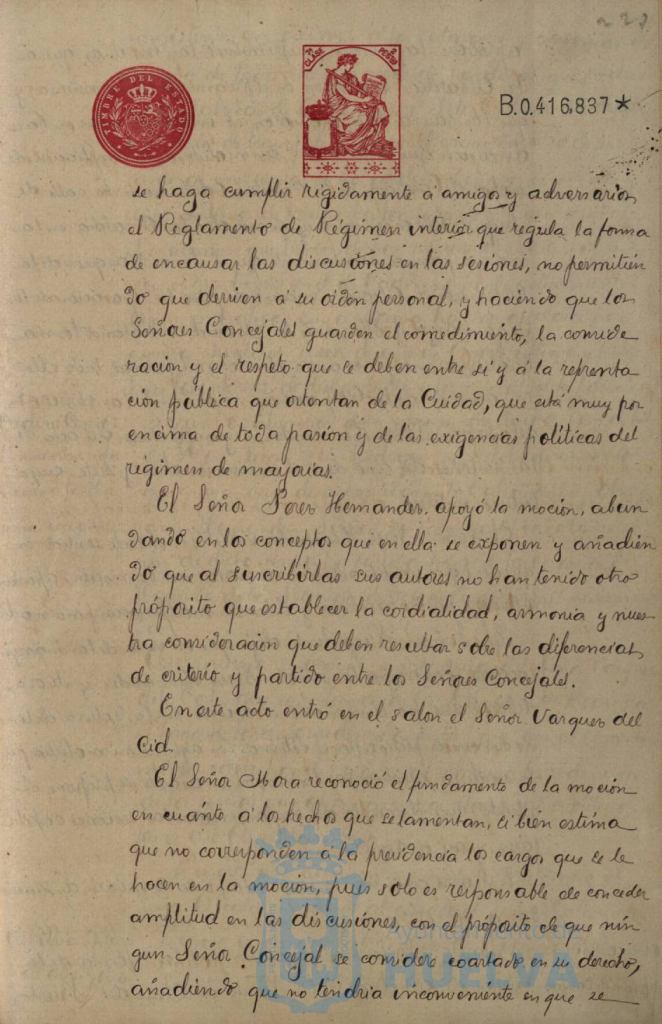 229
TIMBRE DEL ESTADO
7ª CLASE 2 PESETAS
B.0.416,837*
se haga cumplir rigidamente á amigos y adversarios
el Reglamento de Régimen interior que regula la forma
de encausar las discusiones en las sesiones, no permitien
do que deriven á su orden personal, y haciendo que los
Señores Concejales guarden el comedimiento, la conside
racion y el respeto que se deben entre si y á la represnta
cion pública que ostentan de la Cuidad, que está muy por
encima de toda pasion y de las exigencias politicas del
régimen de mayorias.
El Señor Perez Hernandez apoyó la moción, abun
dando en los conceptos que en ella se exponen y añadien
do que al suscribirlas sus autores no han tenido otro
própósito que establecer la cordialidad, armonia y nues
tra consideracion que deben resultar sobre las diferencias
de criterio y partido entre los Señores Concejales.
En este acto entró en el salon el Señor Vazquez del
Cid.
El Señor Mora reconoció el fundamento de la moción
en cuánto á los hechos que se lamentan, si bien estima
que no corresponden á la presidencia los cargos que se le
hacen en la moción, pues solo es responsable de conceder
amplitud en las discusiones, con el própósito de que nin
gun Señor Concejal se considere coartado en su derecho,
añadiendo que no tendria inconveniente en que se
HUELVA